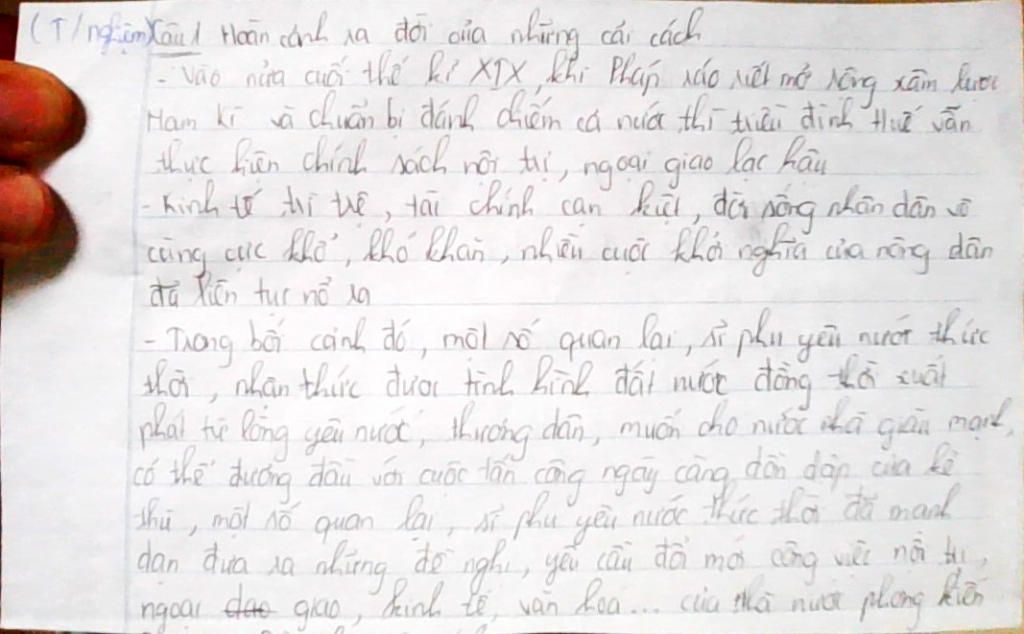 (T/nghiệm) Câu 1 Hoàn cảnh ra đời của những cải cách
- Vào nửa cuối thế kỉ XIX, khi Pháp ráo riết mở rộng xâm lược
Nam kì và chuẩn bị đánh chiếm cả nước thì triều đình Huế vẫn
thực hiện chính sách nội trị, ngoại giao lạc hậu
- Kinh tế trì trệ, tài chính cạn kiệt, đời sống nhân dân vô
cùng cực khổ, khó khăn, nhiều cuộc khởi nghĩa của nông dân
đã liên tục nổ ra
- Trong bối cảnh đó, một số quan lại, sĩ phu yêu nước thức
thời, nhận thức được tình hình đất nước đồng thời xuất
phát từ lòng yêu nước, thương dân, muốn cho nước nhà giàu mạnh,
có thể đương đầu với cuộc tấn công ngày càng dồn dập của kẻ
thù, một số quan lại, sĩ phu yêu nước thức thời đã mạnh
dạn đưa ra những đề nghị, yêu cầu đổi mới công việc nội trị,
ngoại dao giao, kinh tế, văn hoá... của nhà nước phong kiến